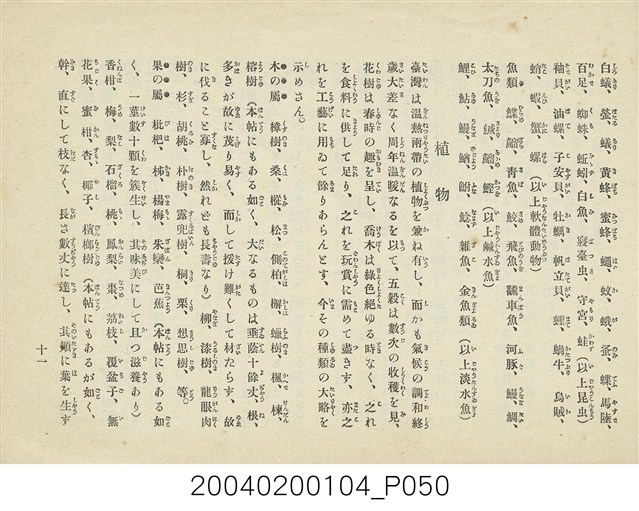 白蟻、螢、虻、黃蜂、蜜蜂、蠅、蚊、蛾、蚤、蝶、馬陸、
百足、蜘蛛、蚯蚓、白魚、寢臺虫、守宮、蛙（以上昆虫）
釉貝、油螺、子安貝、牡蠣、帆立貝、蟶、蝸牛、烏賊、
蛤、蝦、蟹、螺（以上軟體動物）
魚類 鰈、鯧、靑魚、鮫、飛魚、蠶車魚、河豚、鰻、鯛、
太刀魚、鰔、鰡、鰹（以上鹹水魚）
鯉、鮎、鰻、鰌、鮒、鯰、雜魚、金魚類（以上淡水魚）
植物
臺灣は温熱兩帶の植物を兼ね有し、而かも氣候の調和終
歲大差なく周年温暖なるを以て、五穀は數次の收穫を見、
花樹は春時の趣を呈し、喬木は綠色絕ゆる時なく、之れ
を食料に供して足り、之れを玩賞に需めて盡きず、亦之
れを工藝に用ゐて餘りあらんとす、今その種類の大略を
示めさん。
木の屬 樟樹、桑、樅、松、側柏、櫸、蠟樹、楓、楝、
榕樹（本帖にもある如く、大なるものは垂蔭十餘丈、根、
多きが故に茂り易く、而して拔け難くして材たらず、故
に伐ること寡し、然れども長壽なり）柳、漆樹、龍眼肉
樹、杉、胡桃、朴樹、露兜樹、桐、栗、想思樹、等。
果の屬 枇杷、柿、楊梅、朱欒、芭蕉（本帖にもある如
く、一莖數十顆を簇生し、其味美にして且つ滋養あり）
香柑、梅、梨、石榴、桃、鳳梨、棗、荔枝、覆盆子、無
花果、蜜柑、杏、椰子、檳榔樹（本帖にもあるが如く、
幹、直にして枝なく、長さ數丈に達し、其顚に葉を生す
十一
20040200104_P050